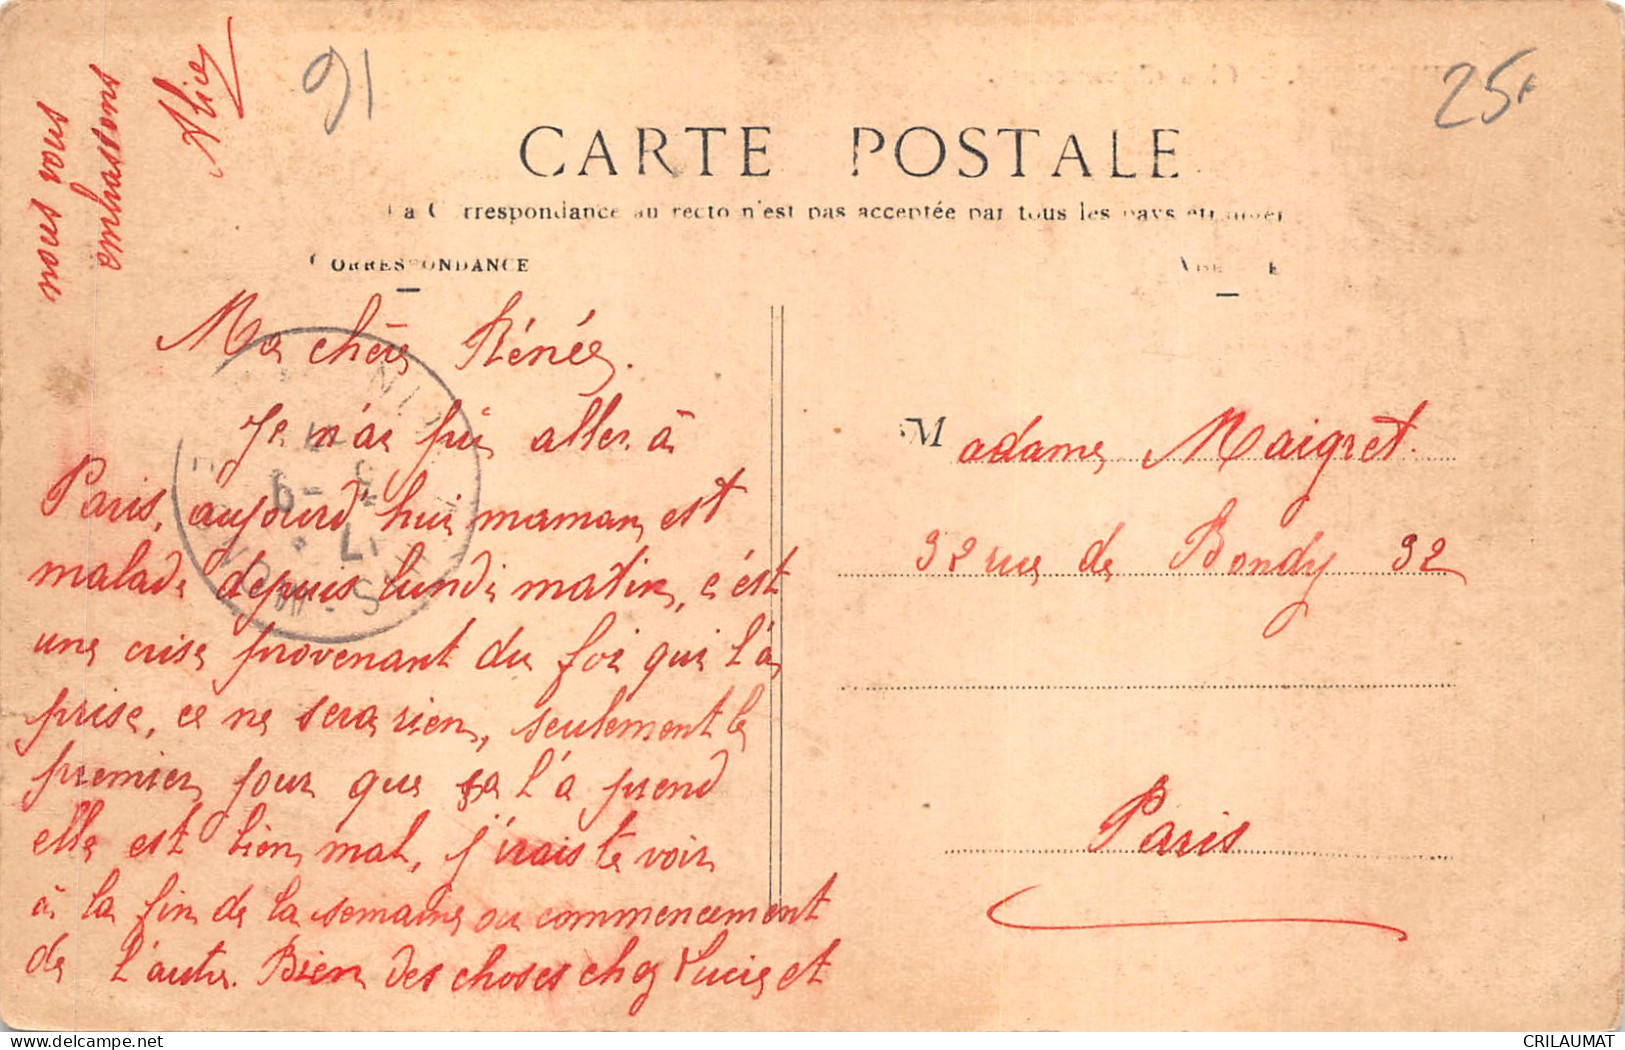 91
25F
CARTE POSTALE
La Correspondance au recto n'est pas acceptée par tous les pays étrangers
CORRESPONDANCE
Ma chère Rénée.
Je n'ai pu aller à
Paris, aujourd'hui maman est
malade depuis lundi matin, c'ést
une crise provenant du foi qui l'à
prise, ce ne sera rien, seulement le
premier jour que ça l'à prend
elle est bien mal, j'irais te voir
à la fin de la semaine ou commencement
de l'autre. Bien des choses chez Lucie et
nous vous
embrassons
Alice
Madame Maigret.
32 rue de Bondy 32
Paris
CRILAUMAT